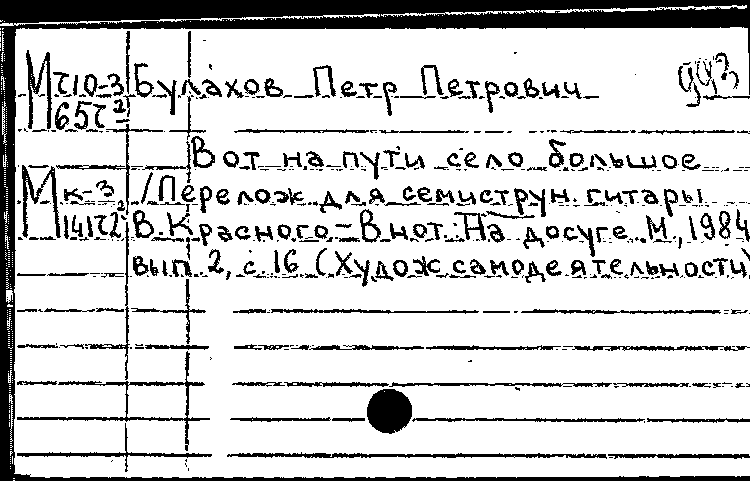 М τ10-3 Булахов Петр Петрович 993
65τ2
Вот на пути село большое
М к-3 /Перелож для семиструн. гитары
141τ2 В. Красного.-В нот.: На досуге. М., 1984
вып 2, с. 16 (Худож самодеятельности)